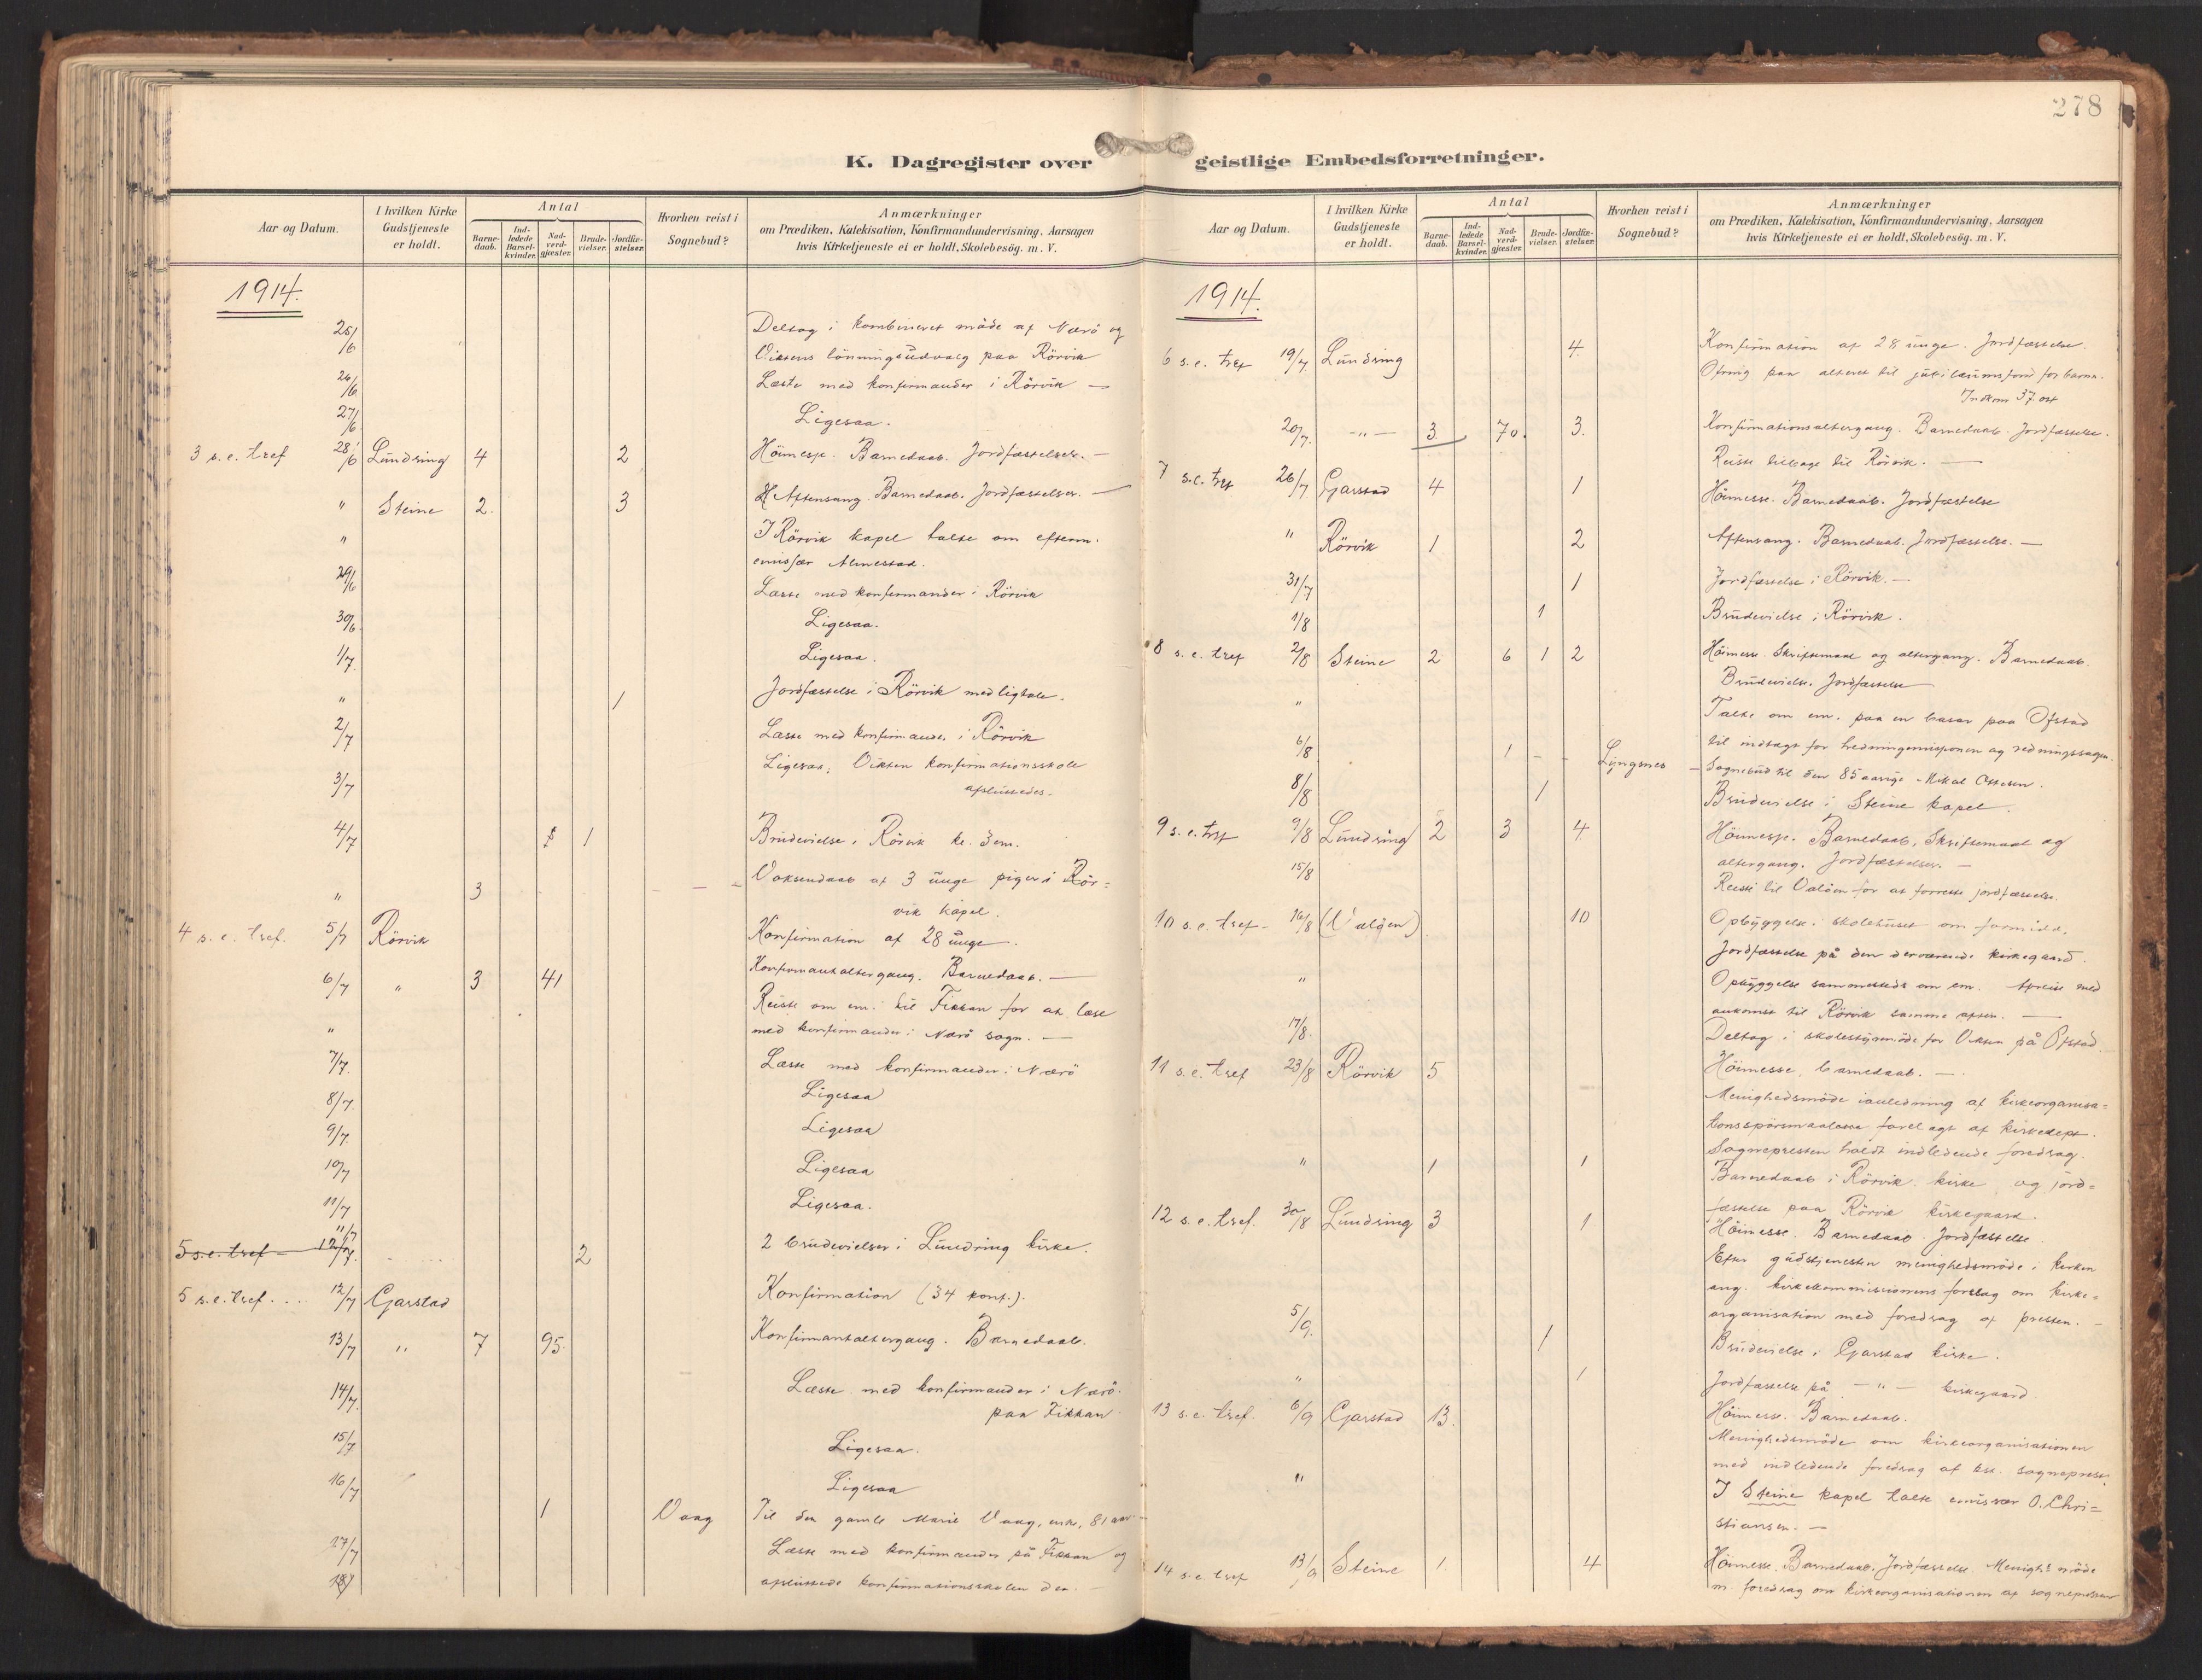 278
K. Dagregister over geistlige Embedsforretninger.
Aar og Datum.
I hvilken Kirke Gudstjeneste er holdt.
Antal
Barne-daab.
Ind-ledede Barsel-kvinder.
Nad-verd-gjæster.
Brude-vielser.
Jordfæ-stelser.
Hvorhen reist i Sognebud?
Anmærkninger
om Prædiken, Katekisation, Konfirmandundervisning, Aarsagen
hvis Kirketjeneste ei er holdt, Skolebesög. m. V.
1914.
25/6 Deltog i kombineret möde af Nærö og
Viktens lönningsudvalg paa Rörvik
26/6 Læste med konfirmander i Rörvik —
27/6 Ligesaa.
3 s. e. tref 28/6 Lundring 4 2 Höimesse. Barnedaab. Jordfæstelser. —
" Steine 2. 3 Aftensang. Barnedaab. Jordfæstelser. —
" I Rörvik kapel talte om efterm.
emissær Almestad.
29/6 Læste med konfirmander i Rörvik
30/6 Ligesaa.
1/7 Ligesaa.
" 1 Jordfæstelse i Rörvik med ligtale.
2/7 Læste med konfirmander i Rörvik
3/7 Ligesaa; Vikten konfirmationsskole
afsluttedes.
4/7 1 Brudevielse i Rörvik kl. 3 em.
" 3 Voksendaab af 3 unge piger i Rör=
vik kapel.
4 s. e. tref. 5/7 Rörvik Konfirmation af 28 unge.
6/7 " 3 41 Konfirmantaltergang. Barnedaab. —
" Reiste om em. til Fikkan for at læse
med konfirmander i Nærö sogn. —
7/7. Læste med konfirmander i Nærö
8/7. Ligesaa
9/7. Ligesaa
10/7 Ligesaa
11/7 Ligesaa.
5 s. e. tref — 12/7. 11/7 2 2 brudevielser i Lundring kirke.
5 s. e. tref. ... 12/7 Garstad Konfirmation (34 konf.).
13/7 " 7 95. Konfirmantaltergang. Barnedaab.
14/7. Læste med konfirmander i Nærö
paa Fikkan.
15/7 Ligesaa.
16/7 Ligesaa
1 Vaag Til den gamle Marie Vaag, enke, 81 aar —
17/7 Læste med konfirmander på Fikkan og
afsluttede konfirmationsskolen der. —
Aar og Datum.
I hvilken Kirke Gudstjeneste er holdt.
Antal
Barne-daab.
Ind-ledede Barsel-kvinder.
Nad-verd-gjæster.
Brude-vielser.
Jordfæ-stelser.
Hvorhen reist i Sognebud?
Anmærkninger
om Prædiken, Katekisation, Konfirmandundervisning, Aarsagen
hvis Kirketjeneste ei er holdt, Skolebesög. m. V.
1914.
6 s. e. tref 19/7 Lundring 4. Konfirmation af 28 unge. Jordfæstelse.
Ofring paa alteret til jubilæumsfond for barn.
20/7. — " — 3. 70. 3. Konfirmationsaltergang. Barnedaab. Jordfæstelse.
Reiste tilbage til Rörvik. —
7 s. e. tref 26/7 Garstad 4 1 Höimesse. Barnedaab. Jordfæstelse
" Rörvik 1 2 Aftensang. Barnedaab. Jordfæstelse. —
31/7 1 Jordfæstelse i Rörvik. —
1/8 1 Brudevielse i Rörvik.
8 s. e. tref 2/8 Steine 2 6 1 2 Höimesse. Skriftemaal og altergang. Barnedaab.
Brudevielse. Jordfæstelse
" Talte om em. paa en basar paa Ofstad
til indtægt for hedningemissjonen og redningssagen.
6/8 1 – – Lyngsnes – Sognebud til den 85 aarige Mikal Ottesen.
8/8 1 Brudevielse i Steine kapel.
9 s. e. tref 9/8 Lundring 2 3 4 Höimesse. Barnedaab. Skriftemaal og
altergang. Jordfæstelser. —
15/8 Reiste til Valöen for at forrette jordfæstelse.
10 s. e. tref — 16/8 (Valöen) 10 Opbyggelse i skolehuset om formidd.
Jordfæstelse på den derværende kirkegaard.
" Opbyggelse sammesteds om em. Afreise med
ankomst til Rörvik samme aften. —
17/8. Deltog i skolestyremöde for Vikten på Ofstad.
11 s. e. tref 23/8 Rörvik 5 Höimesse, barnedaab. —
Menighedsmöde i anledning af kirkeorganisa=
tionsspörsmaalene forelagt af kirkedept.
Sognepresten holdt indledende foredrag.
" 1 1 Barnedaab i Rörvik kirke og jord=
fæstelse paa Rörvik kirkegaard.
12 s. e. tref. 30/8 Lundring 3 1 Höimesse. Barnedaab. Jordfæstelse
Efter gudstjenesten menighedsmöde i kirken
ang. kirkekommisionens forslag om kirke=
organisation med foredrag af presten. —
5/9. 1 Brudevielse i Garstad kirke.
" 1 Jordfæstelse på — " — kirkegaard
13 s. e. tref. 6/9 Garstad 13. Höimesse. Barnedaab.
Menighedsmöde om kirkeorganisationen
med indledende foredrag af sogneprest.
" I Steine kapel talte emisær O. Chri=
stiansen. —
14 s. e. tref 13/9 Steine 1. 4 Höimesse. Barnedaab. Jordfæstelse. Menighs möde
m. foredrag om kirkeorganisationen af sognepresten